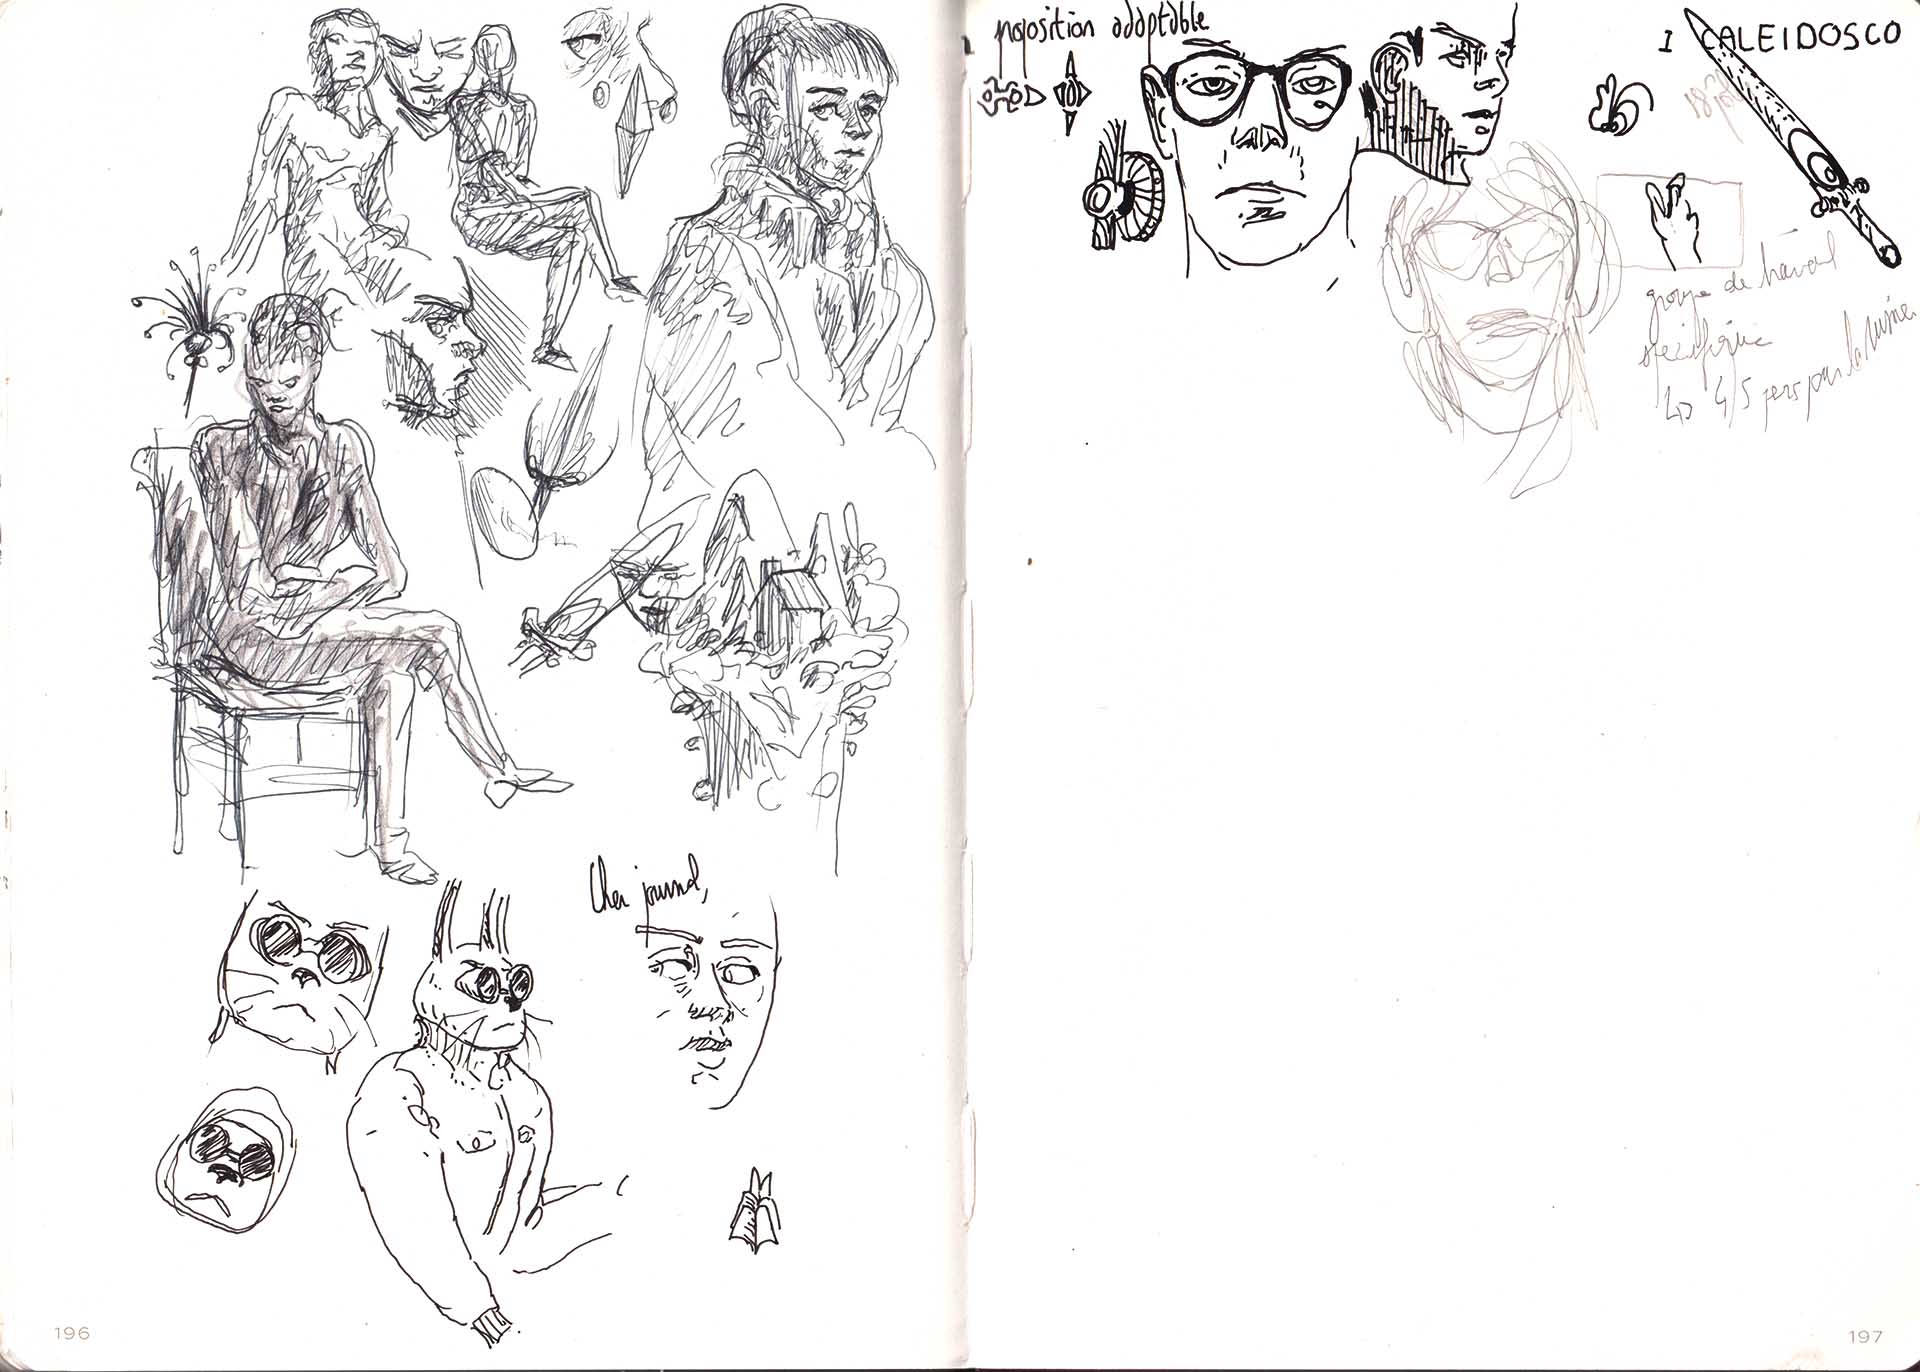 Cher journal,
196
proposition adaptable
I CALEIDOSCO
groupe de travail
spécifique
↳ 4/5 pers par la
197